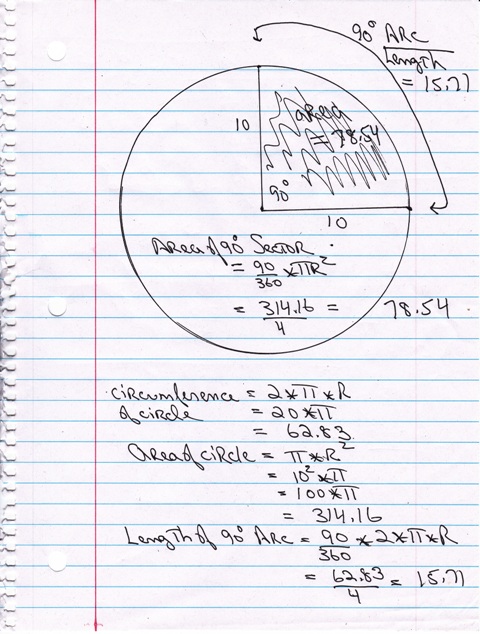 90° ARC
Length
= 15.71
10
area
= 78.54
90°
10
Area of 90° Sector
= 90/360 * πR²
= 314.16/4 = 78.54
circumference = 2 * π * R
of circle = 20 * π
= 62.83
Area of circle = π * R²
= 10² * π
= 100 * π
= 314.16
Length of 90° Arc = 90/360 * 2 * π * R
= 62.83/4 = 15.71